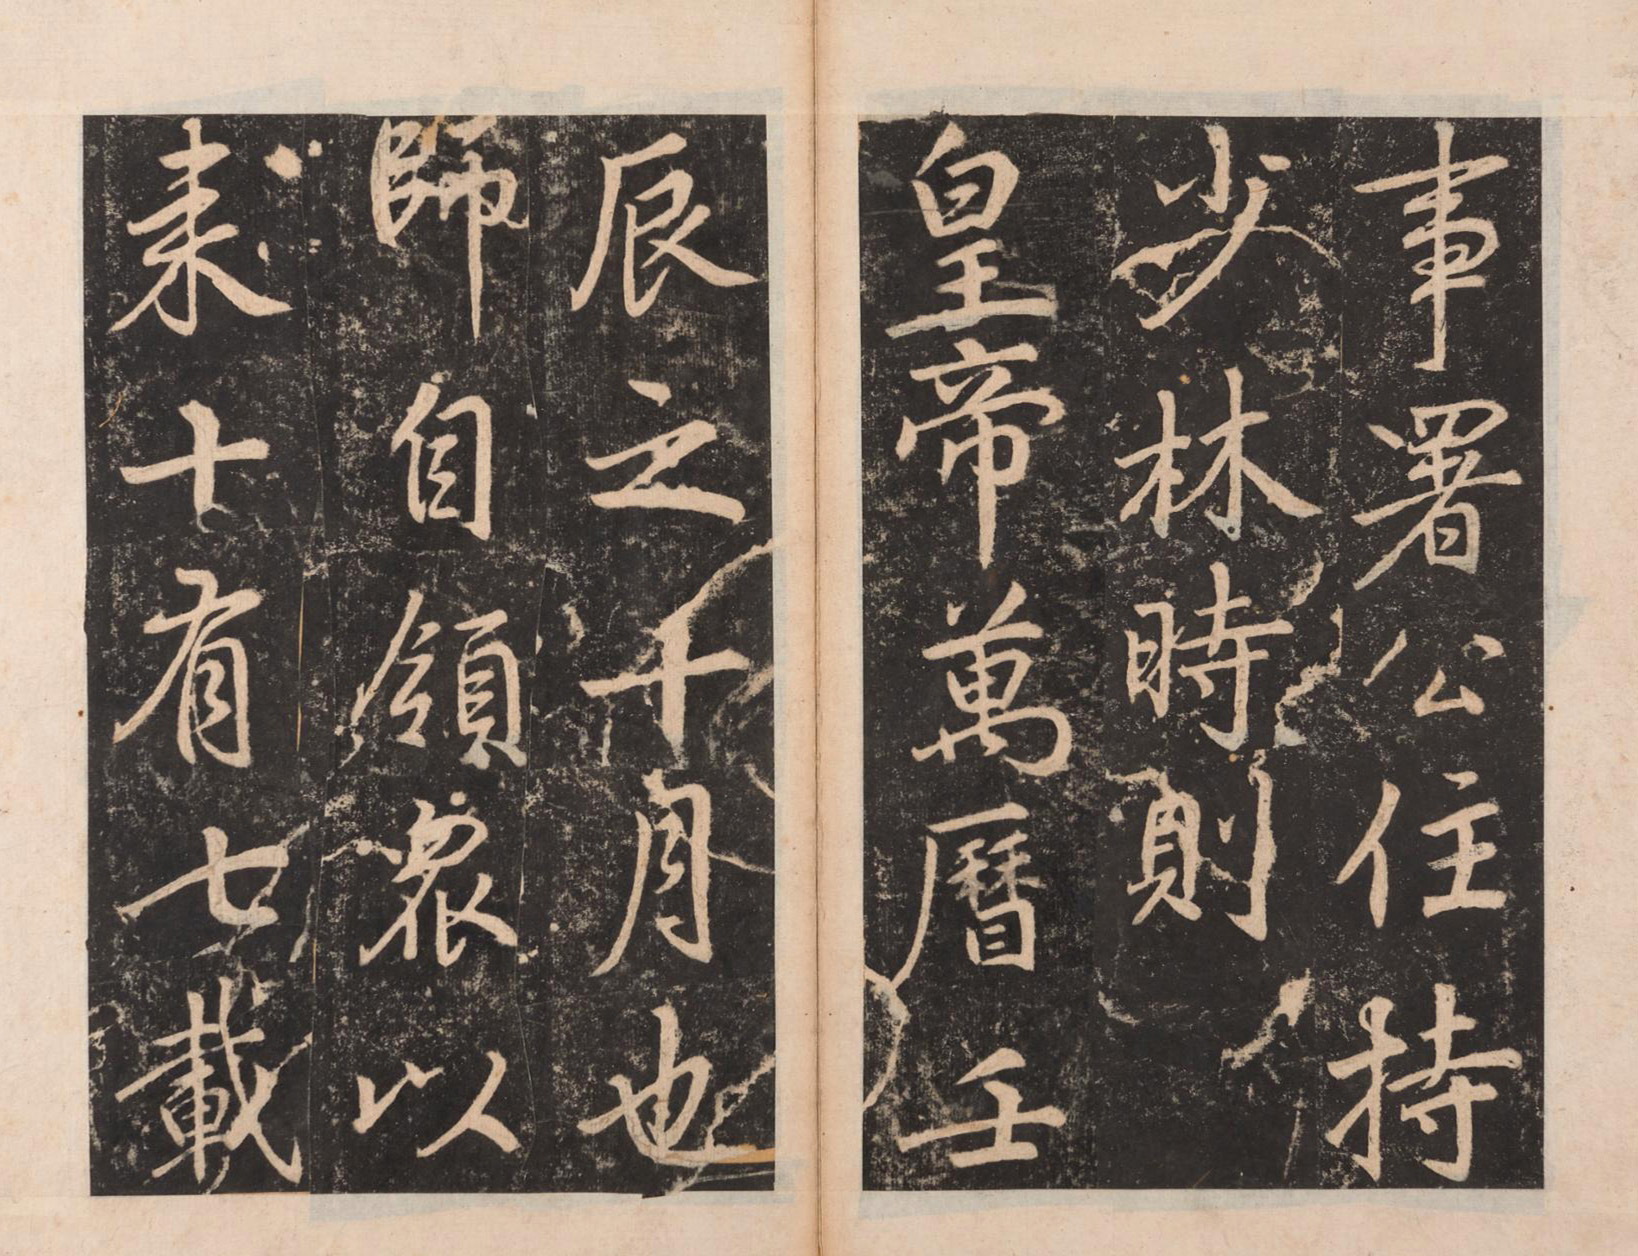 事署公住持
少林時則
皇帝萬曆壬
辰之十月也
師自領眾以
来十有七載